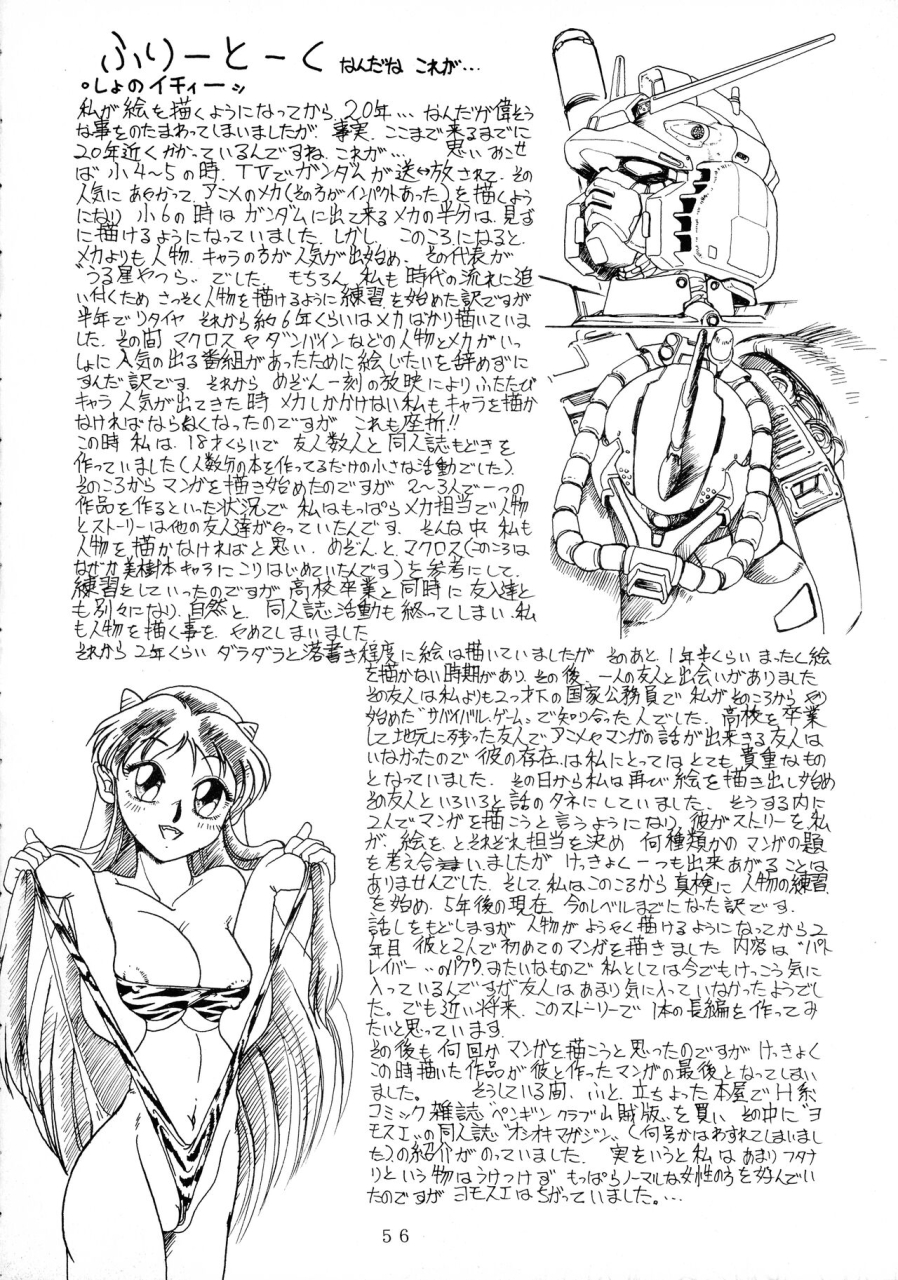 ふりーとーく なんだね これが…
。しょのイチィーッ
私が絵を描くようになってから、20年… なんだか偉そう
な事をのたまわってしまいましたが、事実、ここまで来るまでに
20年近くかかっているんですね、これが… 思いおこせ
ば 小4～5の時、TVでガンダムが送↔放されて、その
人気にあやかって、アニメのメカ(その方がインパクトあった)を描くよう
になり 小6の時は ガンダムに出て来るメカの半分は、見ず
に描けるようになっていました。しかし、このころになると、
メカよりも人物、キャラの方が人気が出始め、その代表が
〝うる星やつら〟でした。 もちろん、私も時代の流れに追
い付くため さっそく人物を描けるように練習を始めた訳ですが
半年でリタイヤ それから約6年くらいはメカばかり描いていま
した。その間 マクロスやダンバインなどの人物とメカがいっ
しょに人気の出る番組があったために絵じたいを辞めずに
すんだ訳です。それから めぞん一刻の放映によりふたたび
キャラ人気が出てきた時 メカしかかけない私もキャラを描か
なければならなくなったのですが これも座折!!
この時 私は、18才くらいで 友人数人と同人誌もどきを
作っていました(人数分の本を作ってるだけの小さな活動でした)
そのころからマンガを描き始めたのですが 2～3人で一つの
作品を作るといった状況で 私はもっぱらメカ担当で人物
とストーリーは他の友人達がやっていたんです。そんな中 私も
人物を描かなければと思い、めぞんと、マクロス(このころは
なぜか美樹本キャラにこりはじめていたんです)を参考にして、
練習をしていったのですが 高校卒業と同時に友人達と
も別々になり、自然と、同人誌活動も終ってしまい、私
も人物を描く事を、やめてしまいました
それから2年くらい ダラダラと落書き程度に絵は描いていましたが そのあと、1年半くらい まったく絵
を描かない時期があり、その後、一人の友人と出会いがありました
その友人は私よりも2つ才下の国家公務員で 私がそのころから やり
始めた〝サバイバルゲーム〟で知り合った人でした。高校を卒業
して地元に残った友人でアニメやマンガの話が出来きる友人は
いなかったので 彼の存在は私にとっては とても、貴重なもの
となっていました。その日から私は再び絵を描き出し始め
その友人といろいろと話のタネにしていました。そうする内に
2人でマンガを描こうと言うようになり、彼がストーリーを、私
が、絵を、とそれぞれ担当を決め 何種類かの マンガの題
を考え合いましたが けっきょく一つも出来あがることは
ありませんでした。そして、私はこのころから真検に人物の練習
を始め、5年後の現在、今のレベルまでになった訳です。
話しをもどしますが 人物が ようやく描けるようになってから2
年目 彼と2人で初めてのマンガを描きました 内容は〝パト
レイバー〟のパクリみたいなもので 私としては今でもけっこう気に
入っているんですが友人はあまり気に入っていなかったようでし
た。でも近い将来、このストーリーで 1本の長編を作ってみ
たいと思っています
その後も何回か マンガを描こうと思ったのですが けっきょく
この時描いた作品が彼と作ったマンガの最後となってしまい
ました。 そうしている間、ふと、立ちよった本屋でH系
コミック雑誌〝ペンギンクラブ山賊版〟を買い その中に〝ヨ
モスエ〟の同人誌〝オシオキマガジン〟(何号かはわすれてしまいまし
た)の紹介がのっていました。 実をいうと私はあまりフタナ
リという物はうけつけず もっぱらノーマルな女性の方を好んでい
たのですが ヨモスエはちがっていました。…
56